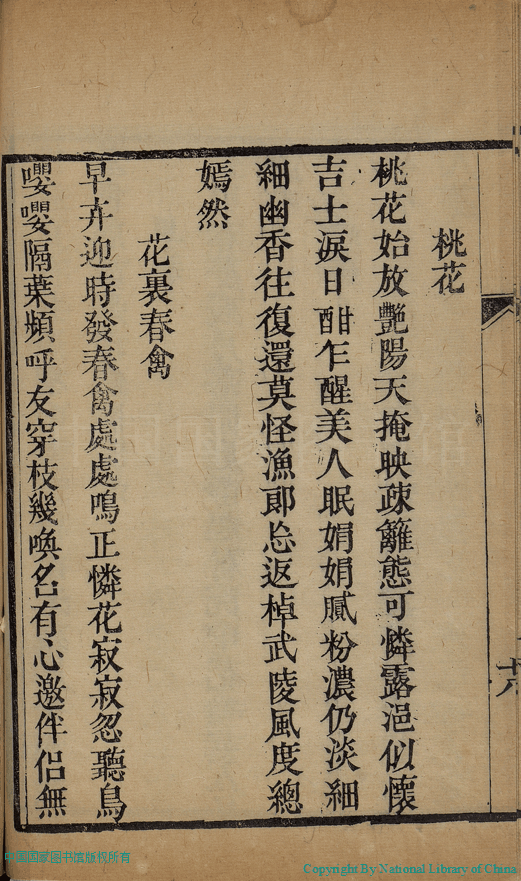 桃花
桃花始放艷陽天掩映疎籬態可憐露浥似懷
吉士淚日酣乍醒美人眠娟娟膩粉濃仍淡細
細幽香往復還莫怪漁郎忘返棹武陵風度總
嫣然
花裏春禽
早卉迎時發春禽處處鳴正憐花寂寂忽聽鳥
嚶嚶隔葉頻呼友穿枝幾喚名有心邀伴侶無
十八
中国国家图书馆
中国国家图书馆版权所有
Copyright By National Library of China